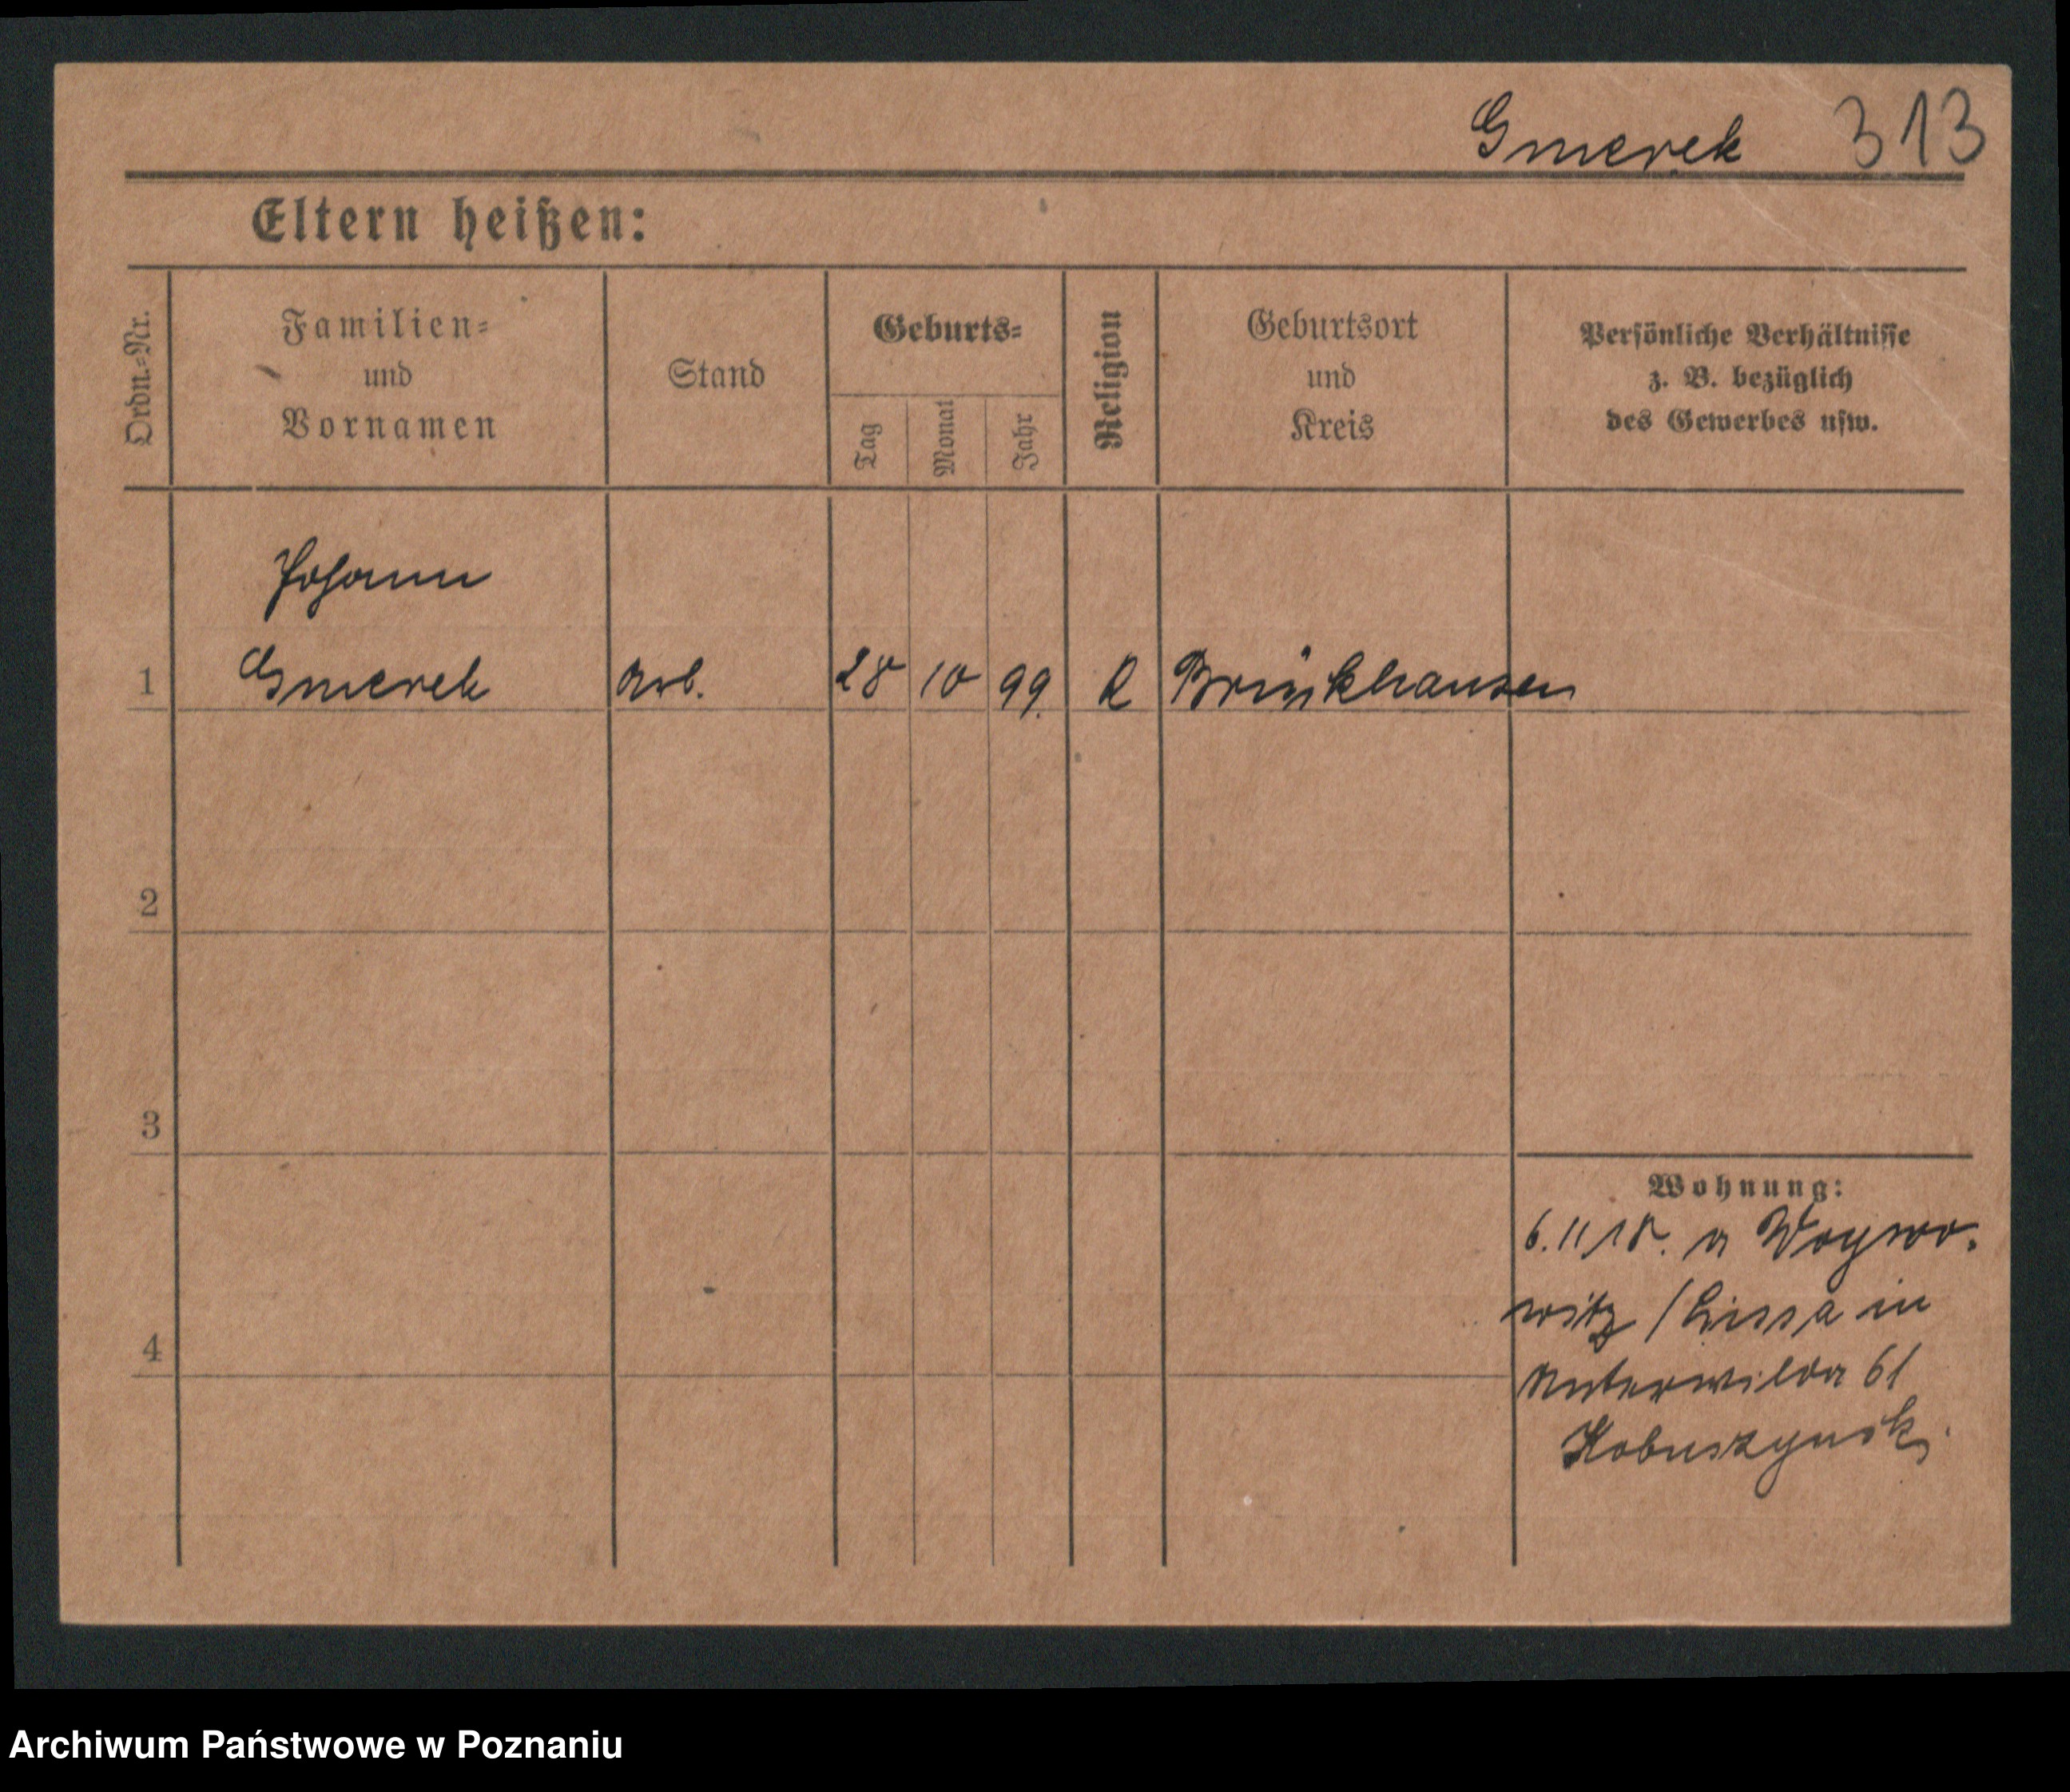 Gmerek 313
Eltern heißen:
Ordn.=Nr.
Familien=
und
Vornamen
Stand
Geburts=
Tag
Monat
Jahr
Religion
Geburtsort
und
Kreis
Persönliche Verhältnisse
z. B. bezüglich
des Gewerbes usw.
Johann
1 Gmerek Arb. 28 10 99. R Brückhausen
2
3
Wohnung:
6. 11 18. a Woyno-
witz / Lissa in
4
Unterwilda 61
Kobuszynski
Archiwum Państwowe w Poznaniu